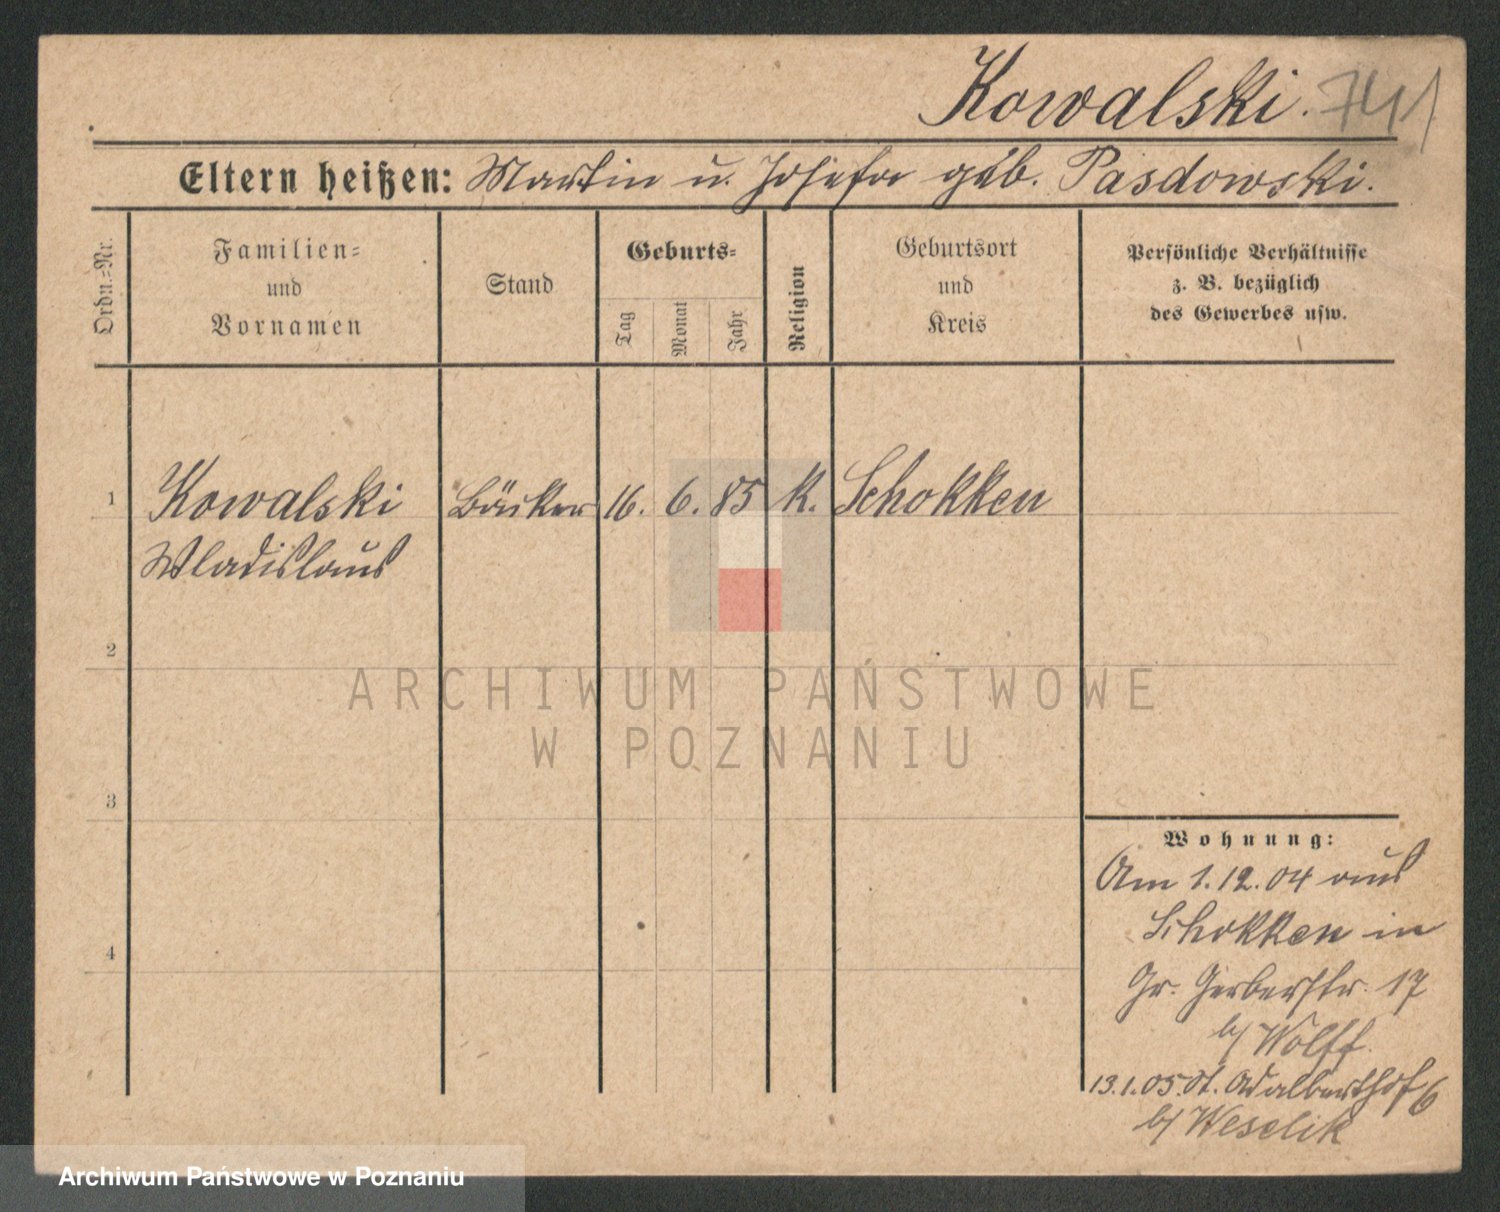 Kowalski. 741
Eltern heißen: Martin u. Josefa geb. Pasdowski.
Ordn.-Nr.
Familien-
und
Vornamen
Stand
Geburts-
Tag
Monat
Jahr
Religion
Geburtsort
und
Kreis
Persönliche Verhältnisse
z. B. bezüglich
des Gewerbes usw.
1 Kowalski Bäcker 16. 6. 85 K. Schokken
Wladislaus
2
3
4
Wohnung:
Am 1.12.04 aus
Schokken in
Gr. Gerberstr. 17
b/ Wolff
13.1.05. Adalberthof 6
b/ Weselik
ARCHIWUM PAŃSTWOWE
W POZNANIU
Archiwum Państwowe w Poznaniu